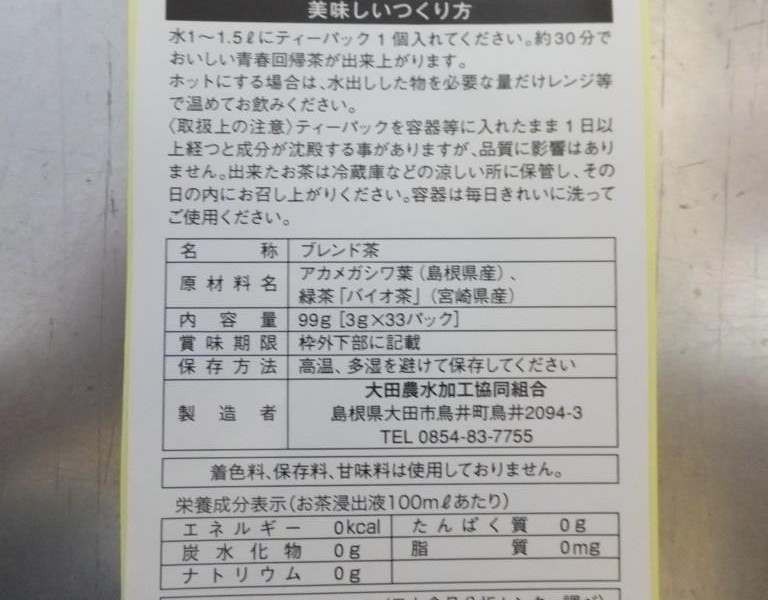 美味しいつくり方
水1～1.5ℓにティーパック1個入れてください。約30分で
おいしい青春回帰茶が出来上がります。
ホットにする場合は、水出しした物を必要な量だけレンジ等
で温めてお飲みください。
〈取扱上の注意〉ティーパックを容器等に入れたまま1日以
上経つと成分が沈殿する事がありますが、品質に影響はあり
ません。出来たお茶は冷蔵庫などの涼しい所に保管し、その
日の内にお召し上がりください。容器は毎日きれいに洗って
ご使用ください。
名称 ブレンド茶
原材料名 アカメガシワ葉（島根県産）、
緑茶「バイオ茶」（宮崎県産）
内容量 99g［3g×33パック］
賞味期限 枠外下部に記載
保存方法 高温、多湿を避けて保存してください
製造者 大田農水加工協同組合
島根県大田市鳥井町鳥井2094-3
TEL 0854-83-7755
着色料、保存料、甘味料は使用しておりません。
栄養成分表示（お茶浸出液100mℓあたり）
エネルギー 0kcal たんぱく質 0g
炭水化物 0g 脂質 0mg
ナトリウム 0g